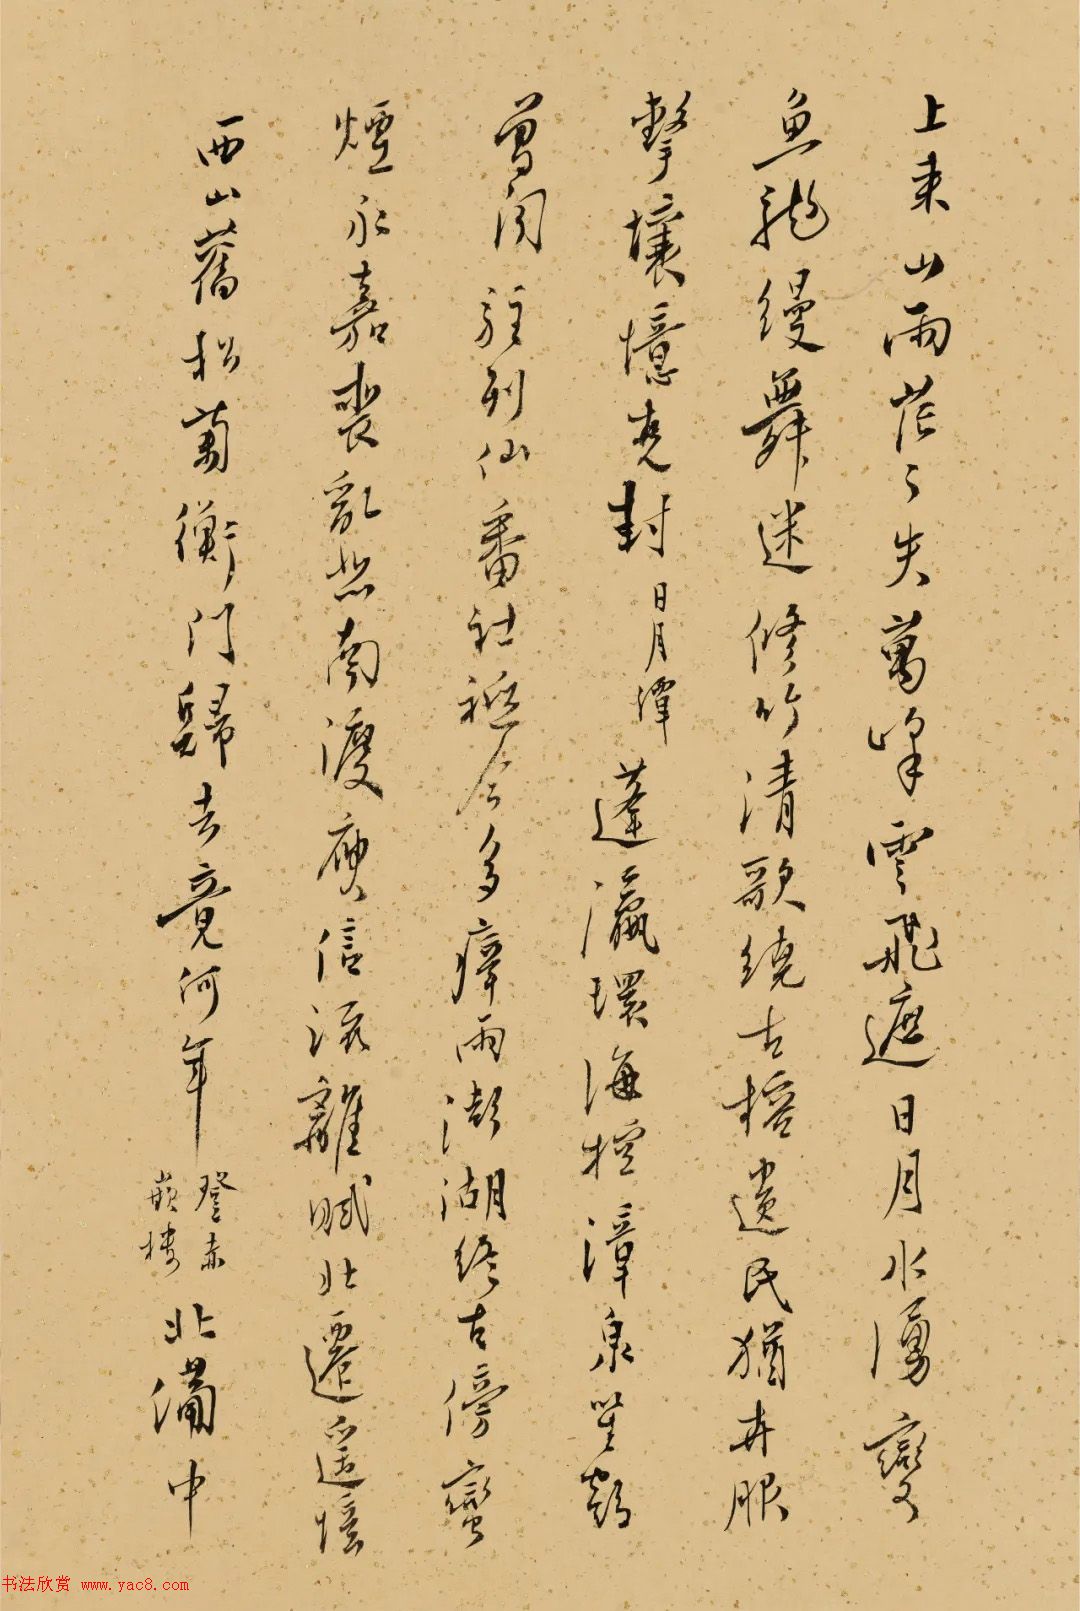 上来山雨茫々失萬峰雲飛遮日月水湧變
魚龍縵舞迷修竹清歌繞古榕遺民猶卉服
擊壤憶堯封日月潭蓬瀛環海控漳泉笙鶴
曾聞駐列仙番社祗今多瘴雨澎湖終古傍蠻
煙永嘉喪亂悲南渡庾信流離賦北遷遥憶
西山舊松菊衡門歸去竟何年登赤嵌樓北溝中
书法欣赏 www.yac8.com